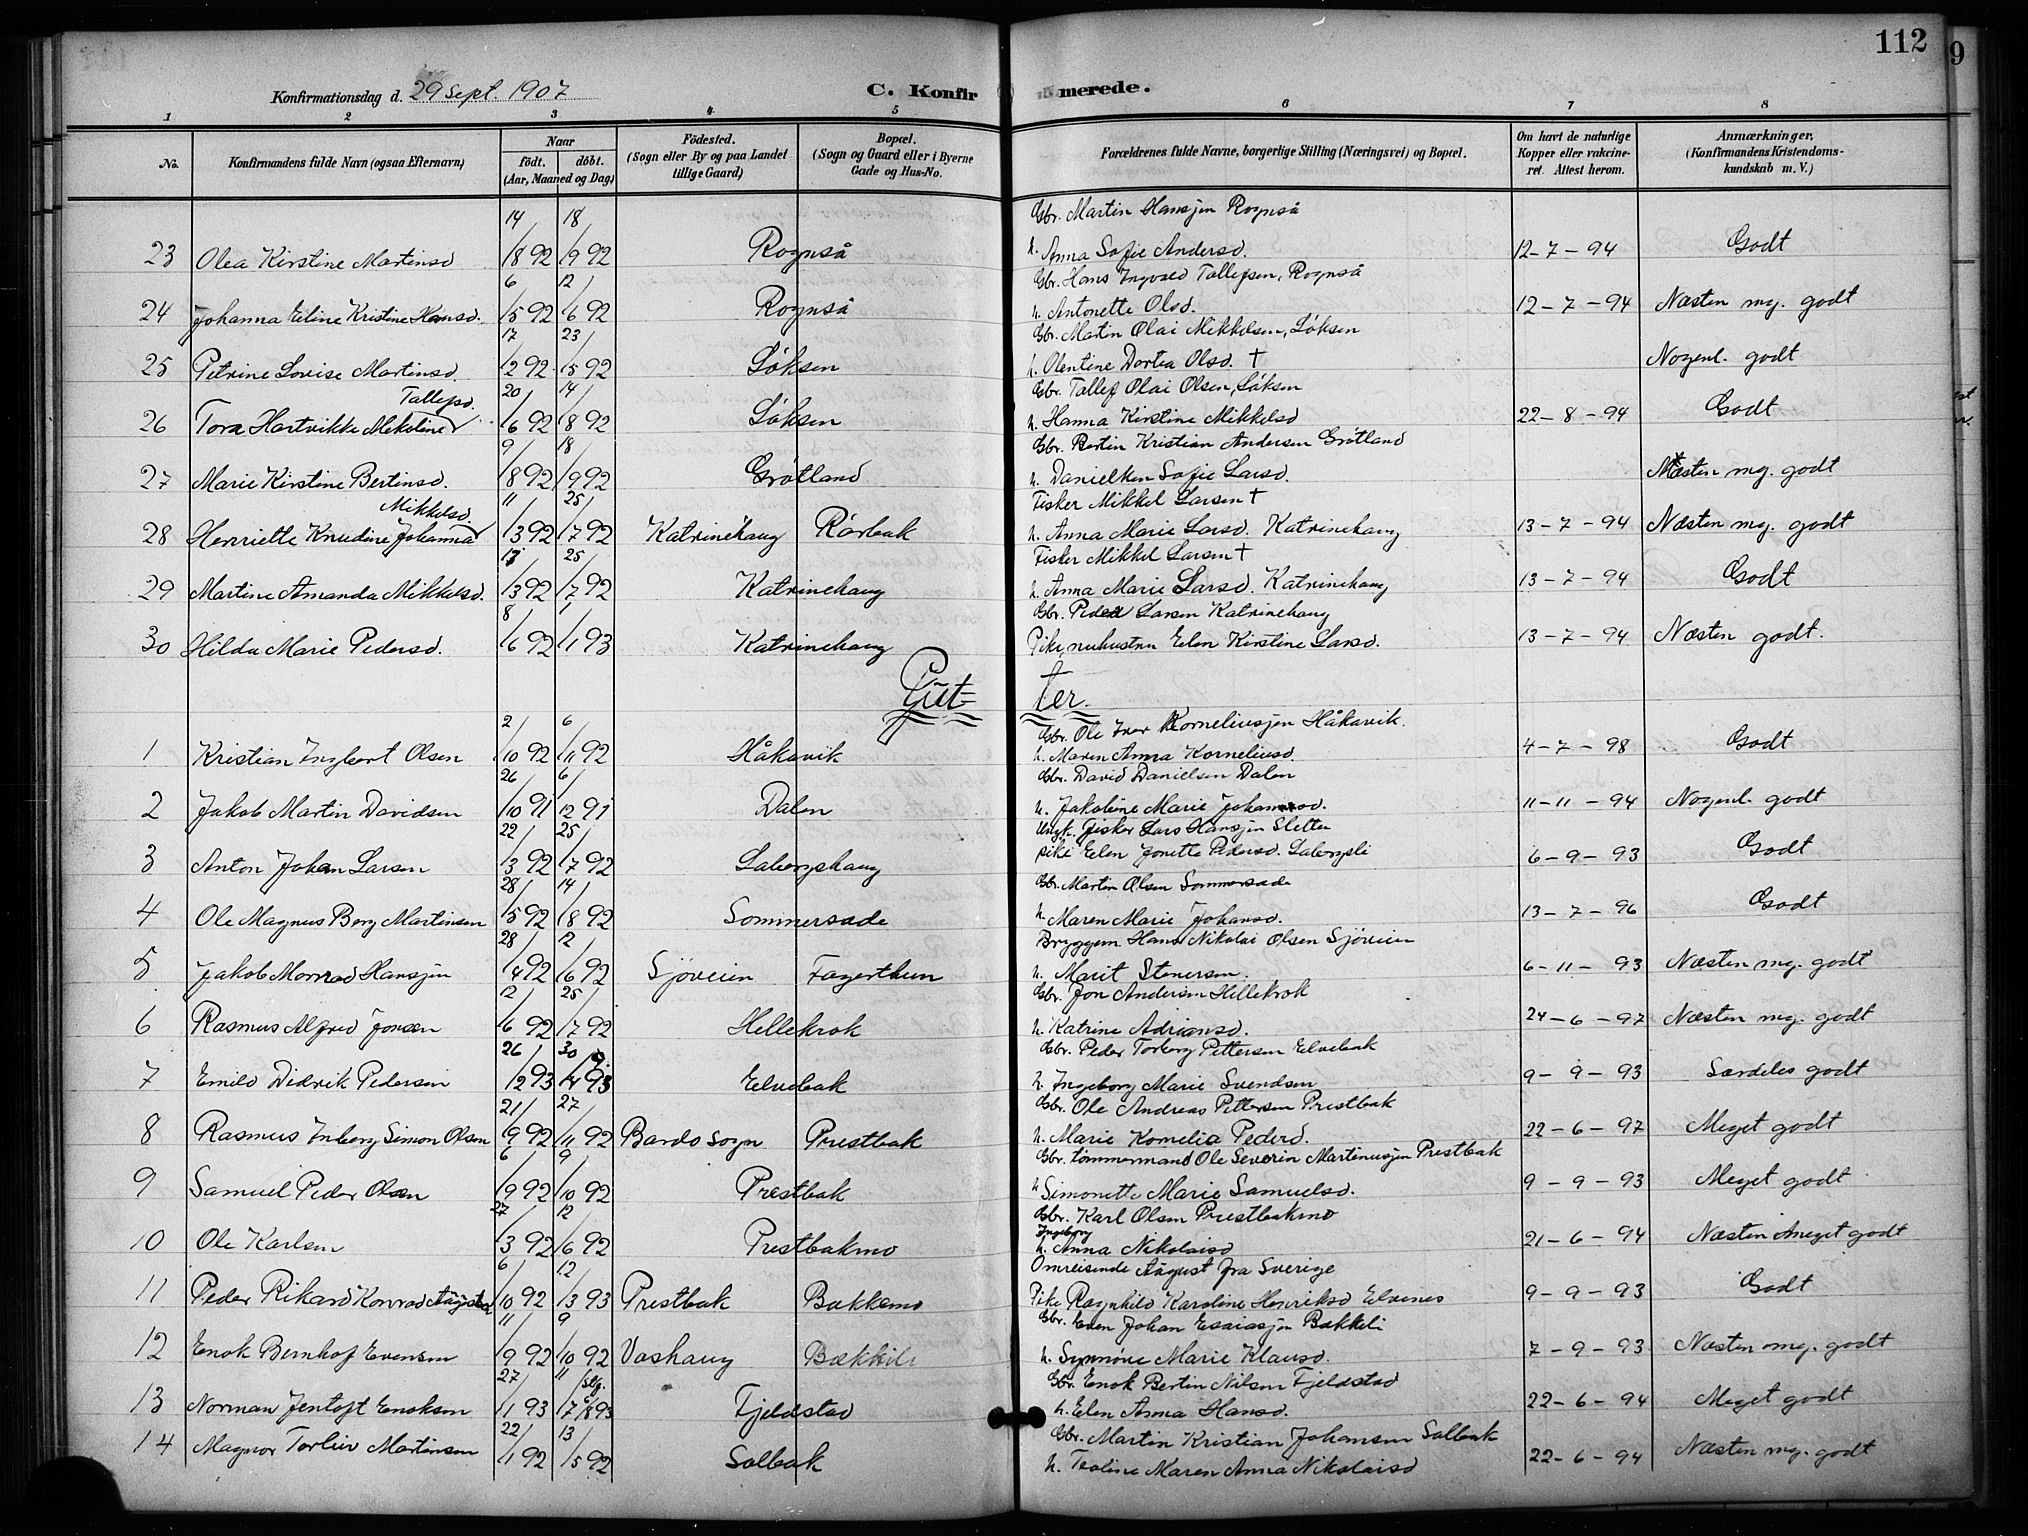 112
9
Konfirmationsdag d. 29 Sept. 1907
C. Konfirmerede.
1 2 3 4 5 6 7 8
No.
Konfirmandens fulde Navn (ogsaa Efternavn)
Naar
födt. döbt.
(Aar, Maaned og Dag)
Födested.
(Sogn eller By og paa Landet
tillige Gaard)
Bopæl.
(Sogn og Gaard eller i Byerne
Gade og Hus-No.
Forældrenes fulde Navne, borgerlige Stilling (Næringsvei) og Bopæl.
Om havt de naturlige
Kopper eller vakcine-
ret. Attest herom.
Anmærkninger,
(Konfirmandens Kristendoms-
kundskab m. V.)
Gbr. Martin Hansjen Rognså
23 Olea Kirstine Martinsd 14/8 92 18/9 92 Rognså h. Anna Sofie Andersd. 12-7-94 Godt
Gbr. Hans Ingvald Tallefsen, Rognså
24 Johanna Eline Kristine Hansd. 6/5 92 12/6 92 Rognså h. Antonette Olsd. 12-7-94 Næsten mg. godt
Gbr. Martin Olai Mikkelsen, Löksen
25 Petrine Lovise Martinsd. 17/2 92 23/5 92 Löksen h. Olentine Dortea Olsd. † Nogenl. godt
Gbr. Tallef Olai Olsen, Löksen
Tallefsd.
26 Tora Hartvikke Mekoline 20/6 92 14/8 92 Löksen h. Hanna Kirstine Mikkelsd 22-8-94 Godt
Gbr. Bertin Kristian Andersen Grötland
27 Marie Kirstine Bertinsd. 9/8 92 18/9 92 Grötland h. Danielken Sofie Larsd. Næsten mg. godt
Fisker Mikkel Larsen †
Mikkelsd.
28 Henriette Knudine Johanna 11/3 92 25/7 92 Katrinehaug Rörbak h. Anna Marie Larsd. Katrinehaug 13-7-94 Næsten mg. godt
Fisker Mikkel Larsen †
29 Martine Amanda Mikkelsd. 13/3 92 25/7 92 Katrinehaug h. Anna Marie Larsd. Katrinehaug 13-7-94 Godt
Gbr. Peder Larsen Katrinehaug
30 Hilda Marie Pedersd. 8/6 92 1/1 93 Katrinehaug Pike, nuhustru Elen Kirstine Larsd. 13-7-94 Næsten godt.
Gut-ter.
Gbr. Ole Ivar Korneliusjen Håkavik.
1 Kristian Ingbert Olsen 2/10 92 6/11 92 Håkavik h. Maren Anna Korneliusd. 4-7-98 Godt
Gbr. David Danielsen Dalen
2 Jakob Martin Davidsen 26/10 91 6/12 91 Dalen h. Jakobine Marie Johannsd. 11-11-94 Nogenl. godt
Ungk. Fisker Lars Hansjen Sletten
3 Anton Johan Larsen 22/3 92 25/7 92 Labergshaug pike Elen Jonette Pedersd. Labergsli 6-9-93 Godt
Gbr. Martin Olsen Sommersæde
4 Ole Magnus Berg Martinsen 28/5 92 14/8 92 Sommersæde h. Maren Marie Johansd. 13-7-96 Godt
Bryggem. Hans Nikolai Olsen Sjöveien
5 Jakob Monrad Hansjen 28/4 92 12/6 92 Sjöveien Fagertun h. Marit Stenersen. 6-11-93 Næsten mg. godt
Gbr. Jon Andersen Hellekrok
6 Rasmus Alfred Jonsen 12/6 92 25/7 92 Hellekrok h. Katrine Adriansd. 24-6-97 Næsten mg. godt
Gbr. Peder Torberg Pettersen Elvebak
7 Emild Didrik Pedersen 26/12 93 30/4 93 Elvebak h. Ingeborg Marie Svendsen 9-9-93 Særdeles godt
Gbr. Ole Andreas Pettersen Prestbak
8 Rasmus Inberg Simon Olsen 21/9 92 27/11 92 Bardo sogn Prestbak h. Marie Kornelia Pedersd. 22-6-97 Meget godt
Gbr. tömmermand Ole Severin Martinusjen Prestbak
9 Samuel Peder Olsen 6/9 92 9/10 92 Prestbak h. Simonette Marie Samuelsd. 9-9-93 Meget godt
Gbr. Karl Olsen Prestbakmo
Ingeborg
10 Ole Karlsen 27/3 92 12/6 92 Prestbakmo h. Anna Nikolaisd 21-6-94 Næsten meget godt
Omreisende August fra Sverige
11 Peder Rikard Konrad Augustsen 6/10 92 12/3 93 Prestbak Bakkemo Pike Ragnhild Karoline Henriksd Elvenes 9-9-93 Godt
Gbr. Even Johan Esaiasjen Bakkeli
12 Enok Bernhof Evensen 11/9 92 9/10 92 Vashaug Bækkeli h. Synnöve Marie Klausd. 7-9-93 Næsten mg. godt
Gbr. Enok Bertin Nilsen Fjeldstad
13 Norman Jentoft Enoksen 27/1 93 11/7 93 Fjeldstad h. Elen Anna Hansd. 22-6-94 Meget godt
Gbr. Martin Kristian Johansen Solbak
14 Magnor Torleiv Martinsen 22/1 92 13/5 92 Solbak h. Teoline Maren Anna Nikolaisd 22-6-94 Næsten mg. godt